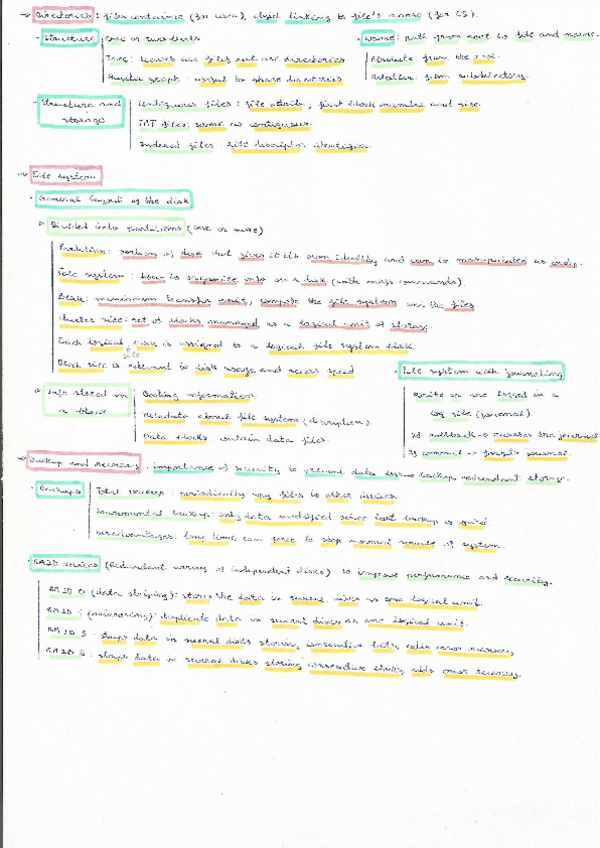 → Directories: files container (for user), object linking to file's name (for OS).
· Structure | One or two levels
Tree: leaves are files and are directories
Acyclic graph: useful to share directories
· Name: path from root to file and name.
Absolute: from the root.
Relative: from subdirectory.
· Structure and storage | Contiguous files: file attrib, first block number and size.
FAT files: same as contiguous.
Indexed files: file descriptor identifier.
→ File system
· General layout of the disk
▷ Divided into partitions (one or more)
Partition: portion of disk that gives it its own identity and can be manipulated as indep.
File system: how to organize info on a disk (with maps commands).
Block: minimum transfer unit, compose the file system and the files
Cluster size: set of blocks managed as a logical unit of storage.
Each logical file is assigned to a logical file system block.
Block size is relevant in disk usage and access speed
▷ Info stored in a block | Booting information.
Metadata about file system (description).
Data blocks contain data files.
· File system with journaling
write op are listed in a
log file (journal)
If rollback → executes the journal
If command →
→ Backup and recovery: importance of security to prevent data backup, redundant storage.
· Backups | Total backup: periodically copy files to other devices.
Incremental backup: only data modified since last backup is copied.
Disadvantages: long time, can force to stop normal of system.
· RAID devices (Redundant arrays of independent discs) to improve performance and security.
RAID 0 (data striping): stores the data in several disks as one logical unit.
RAID 1 (mirroring): duplicate data in several discs as one logical unit.
RAID 3: stripes data in several disks storing consecutive bits, adds error recovery.
RAID 5: stripes data in several disks storing consecutive , adds error recovery.